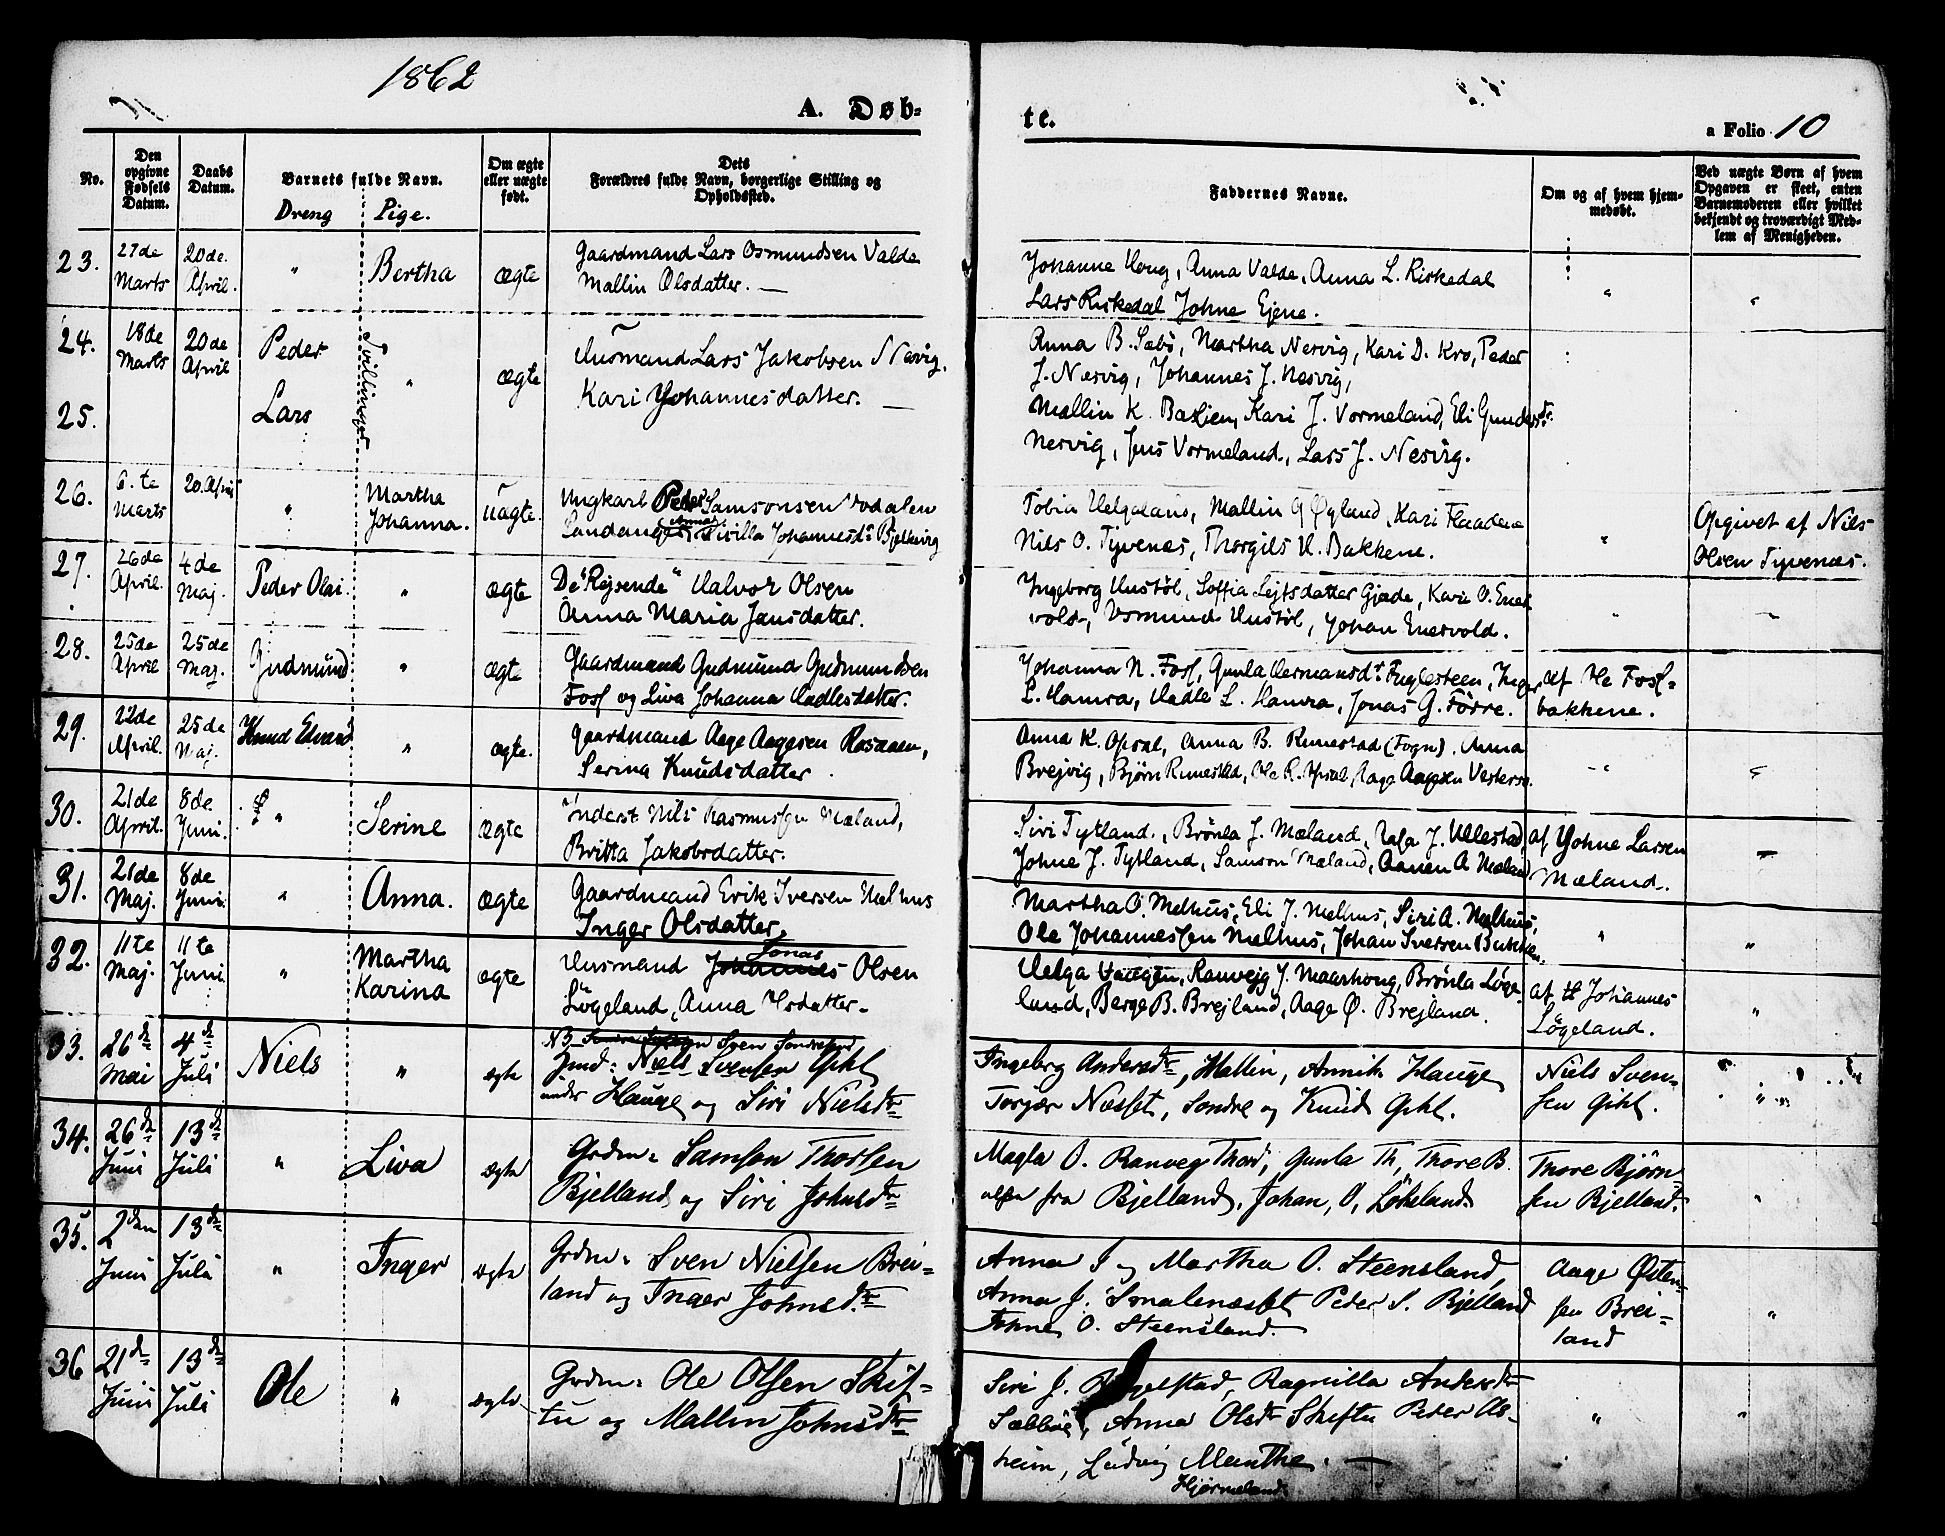 1862
A. Døb-
te.
a Folio 10
No.
Den opgivne Fødsels Datum.
Daabs Datum.
Barnets fulde Navn.
Dreng Pige.
Om ægte eller uægte født.
Dets Forældres fulde Navn, borgerlige Stilling og Opholdssted.
Faddernes Navne.
Om og af hvem hjemmedøbt.
Ved uægte Børn af hvem Opgaven er skeet, enten Barnemoderen eller hvilket bekjendt og troværdigt Medlem af Menigheden.
23. 27de Marts 20de April. " Bertha ægte
Gaardmand Lars Osmundsen Valde
Mallin Olsdatter. —
Johanne Houg, Anna Valde, Anna L. Riskedal
Lars Riskedal Johne Ejene. " "
24. 18de Marts 20de April Peder Tvillinger " ægte
25. Lars
Husmand Lars Jakobsen Nesvig,
Kari Johannesdatter. —
Anna B. Sæbö, Martha Nesvig, Kari D. Kro, Peder
J. Nesvig, Johannes J. Nesvig,
Mallin K. Baklien, Kari J. Vormeland, Eli Gunders
Nesvig, Jens Vormeland, Lars J. Nesvig.
26. 6.te Marts 20. April " Martha Johanna. uægte.
Ungkarl Peder Samsonsen
Sandanger, Anna Sirilla Johannesd. Bjelkevig
Tobia Helgeland, Mallin G Øyland, Kari
Nils O. Tyvenæs, Thorgils H. Bakkene. "
Opgivet af Nils
Olsen Tyvenæs.
27. 26de April 4de Maj. Peder Olai. " ægte
De "Rejsende" Halvor Olsen
Anna Maria Jansdatter.
Ingeborg Hustöl, Soffia Lejfsdatter Gjede, Kari O. Ener
vold, Osmund Hustöl, Johan Enervold. " "
28. 25de April 25de Maj. Gudmund " ægte
Gaardmand Gudmund Gudmundsen
Foss og Liva Johanna Hadlesdatter.
Johanna N. Foss, Gunla Hermansd. Fuglesteen, Inger
L. Hamra, Hadle L. Hamra, Jonas G. Förre.
af Ole Foss-
bakkene.
29. 22de April. 25de Maj. Knud Edvard " ægte.
Gaardmand Aage Aagesen Rosaaen,
Serina Knudsdatter.
Anna K. Opsal, Anna B. Rimestad (Fogn). Anna
Brejvig, Bjørn Rimestad, Ole R. Opsal, Aage Aagesen " "
30. 21de April. 8de Juni. " Serine ægte
Inderst Nils Rasmussen Mæland,
Britta Jakobsdatter.
Siri Tytland, Brönla J. Mæland, J. Ullestad,
Johne J. Tytland, Samson Mæland, Aanen A Mæland
af Johne Larsen
Mæland.
31. 21de Maj. 8de Juni. " Anna. ægte
Gaardmand Erik Iversen Mælhus
Inger Olsdatter.
Martha O. Melhus, Eli J. Melhus, Siri A. Mælhus,
Ole Johannessen Mælhus, Johan Iversen " "
32. 11te Maj. 11te Juni " Martha Karina ægte
Jonas
Husmand Johannes Olsen
Lögeland, Anna
Helga Haugen, Ranvejg J. Maarhoug, Brönla Löge
land, Berge B. Brejland, Aage Ø. Brejland.
af Johannes
Lögeland. "
33. 26de Mai 4de Juli Niels " ægte
NB Sven
Niels Svensen
under Hauge og Siri Nielsdtr
Ingeborg Andersdtr, Mallin, Annik. Hauge
Torgjer Næsset, Sondre og Knud Gihl.
Niels Sven-
sen Gihl. "
34. 26de Juni 13de Juli " Liva ægte
Grdm: Samson Thorsen
Bjelland og Siri Johnsdtr
Magla O. Ranveg Thord, Gunla Th, Thore B.
alle fra Bjelland, Johan, O, Lökeland.
Thore Bjørn-
sen Bjelland. "
35. 2den Juni 13de Juli " Inger ægte
Grdm: Sven Nielsen Brei-
land og Inger Johnsdtr
Anna J og Martha O. Steensland,
Anna J. Smalenesset Peder S. Bjelland
Johne O. Steensland.
Aage Østen-
sen Brei-
land "
36 21de Juni 13de Juli Ole " ægte
Grdm: Ole Olsen Skif-
tu og Mallin Johnsdtr
Siri J. Ragnilla Andersdtr
Sæbbøe, Anna Olsdtr Skiftu Peder As-
heim, Ludvig Manthe. —
Hjørneland " "